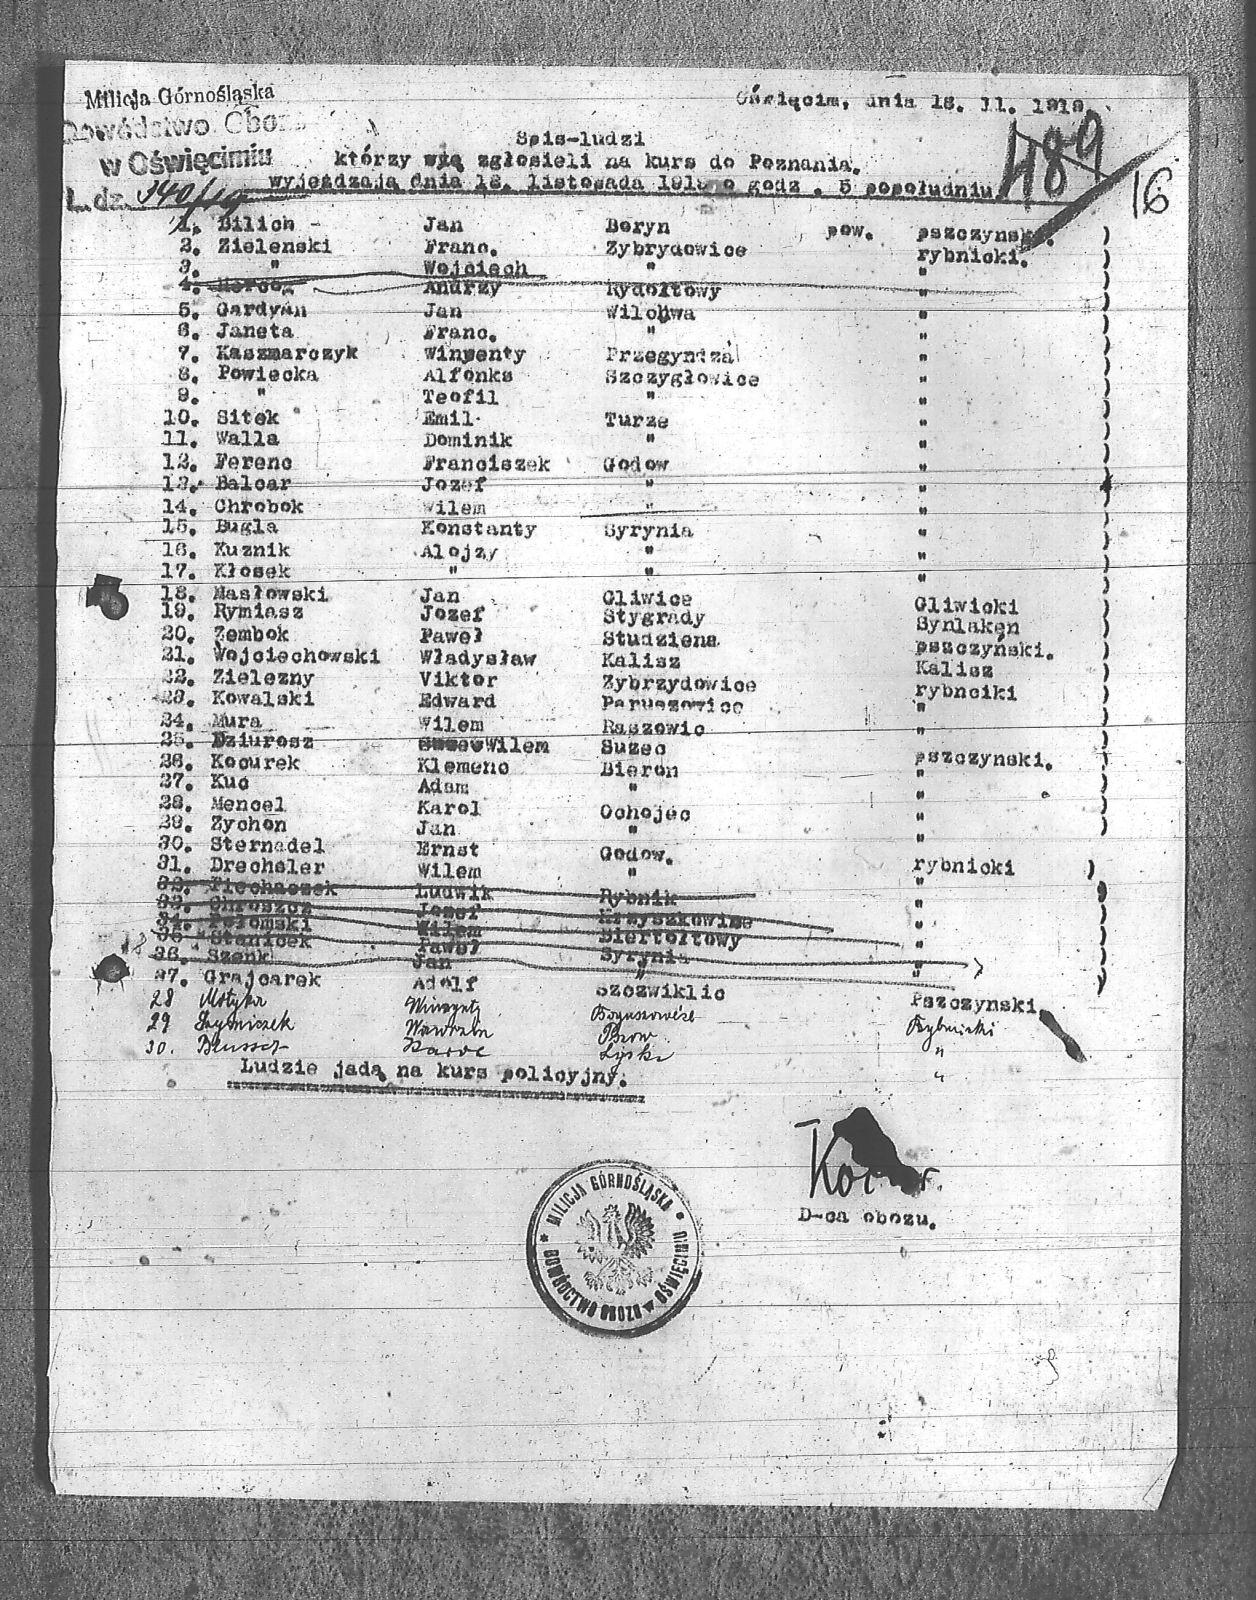 Milicja Górnośląska
Dowództwo Obozu
w Oświęcimiu
L. dz. 340/19
Oświęcim, dnia 18. II. 1919.
489
16
Spis-ludzi
którzy się zgłosieli na kurs do Poznania.
wyjeżdzają dnia 18. listopada 1919 o godz. 5 popołudniu
1. Bilich - Jan Beryn pow. pszczynski.
2. Zielenski Franc. Zybrydowice rybnicki.
3. " Wojciech " "
4. Andrzy Rydołtowy "
5. Gardyan Jan Wilchwa "
6. Janeta Franc. " "
7. Kaszmarczyk Winpenty Przegyndza "
8. Powiecka Alfonks Szczygłowice "
9. " Teofil " "
10. Sitek Emil Turze "
11. Walla Dominik " "
12. Ferenc Franciszek Godow "
13. Balcar Jozef " "
14. Chrobok Wilem " "
15. Bugla Konstanty Syrynia "
16. Kuznik Alojzy " "
17. Kłosek " " "
18. Masłowski Jan Gliwice Gliwicki
19. Rymiasz Jozef Stygrady Synlaken
20. Zembok Paweł Studziena pszczyński.
21. Wojciechowski Władysław Kalisz Kalisz
22. Zielezny Viktor Zybrzydowice rybnciki
23. Kowalski Edward Paruszowice "
24. Mura Wilem Raszowic "
25. Dziurosz Wilem Suzec pszczynski.
26. Kocurek Klemenc Bieron "
27. Kuc Adam " "
28. Mencel Karol Ochojec "
29. Zychon Jan " "
30. Sternadel Ernst Godow. rybnicki
31. Drechsler Wilem " "
32. Piechaczek Ludwik Rybnik "
33. Chroszcz Jozef Krzyszkowice "
34. Połomski Wilem Biertołtowy "
35 Stanicek Paweł Syrynia "
36. Szenk Jan " "
37. Grajcarek Adolf Szczwiklic Pszczynski
28 Motyka Rybnicki
29 "
30. "
Ludzie jadą na kurs policyjny.
D-ca obozu.
MILICJA GÓRNOŚLĄSKA * DOWÓDCTWO OBOZU w OŚWIĘCIMIU *